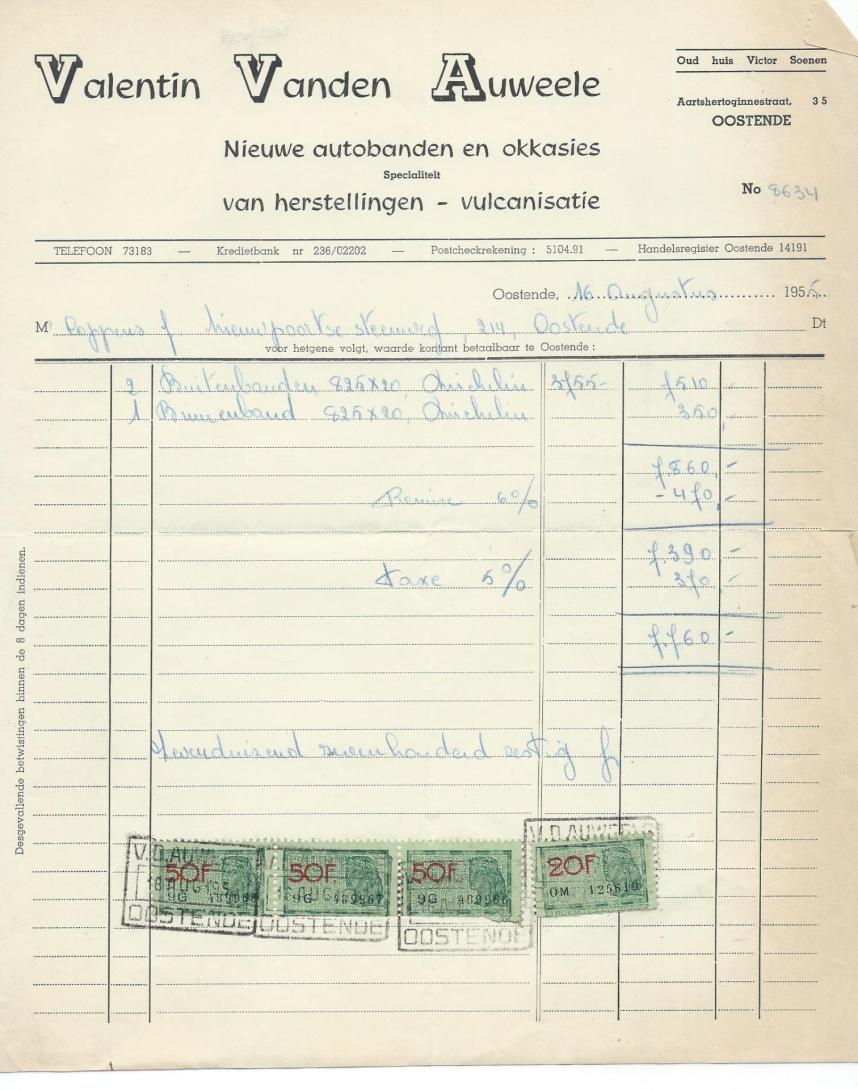 Valentin Vanden Auweele
Oud huis Victor Soenen
Aartshertoginnestraat, 35
OOSTENDE
Nieuwe autobanden en okkasies
Specialiteit
van herstellingen - vulcanisatie
No 8634
TELEFOON 73183 — Kredietbank nr 236/02202 — Postcheckrekening : 5104.91 — Handelsregister Oostende 14191
Oostende, 16 Augustus 1955
Mr Coppens f Nieuwpoortse steenweg, 214, Oostende Dt
voor hetgene volgt, waarde kontant betaalbaar te Oostende :
2 Buitenbanden 825x20, Michelin 3755- 7510,-
1 Binnenband 825x20, Michelin 350,-
7.860,-
Remise 6% -470,-
7.390 -
Taxe 5% 370 -
7.760 -
zevenduizend zevenhonderd zestig fr
Desgevallende betwistingen binnen de 8 dagen indienen.
V.D.AUWEELE
50F 50F 50F 20F
9G 9G 489967 9G OM
OOSTENDE OOSTENDE OOSTENDE